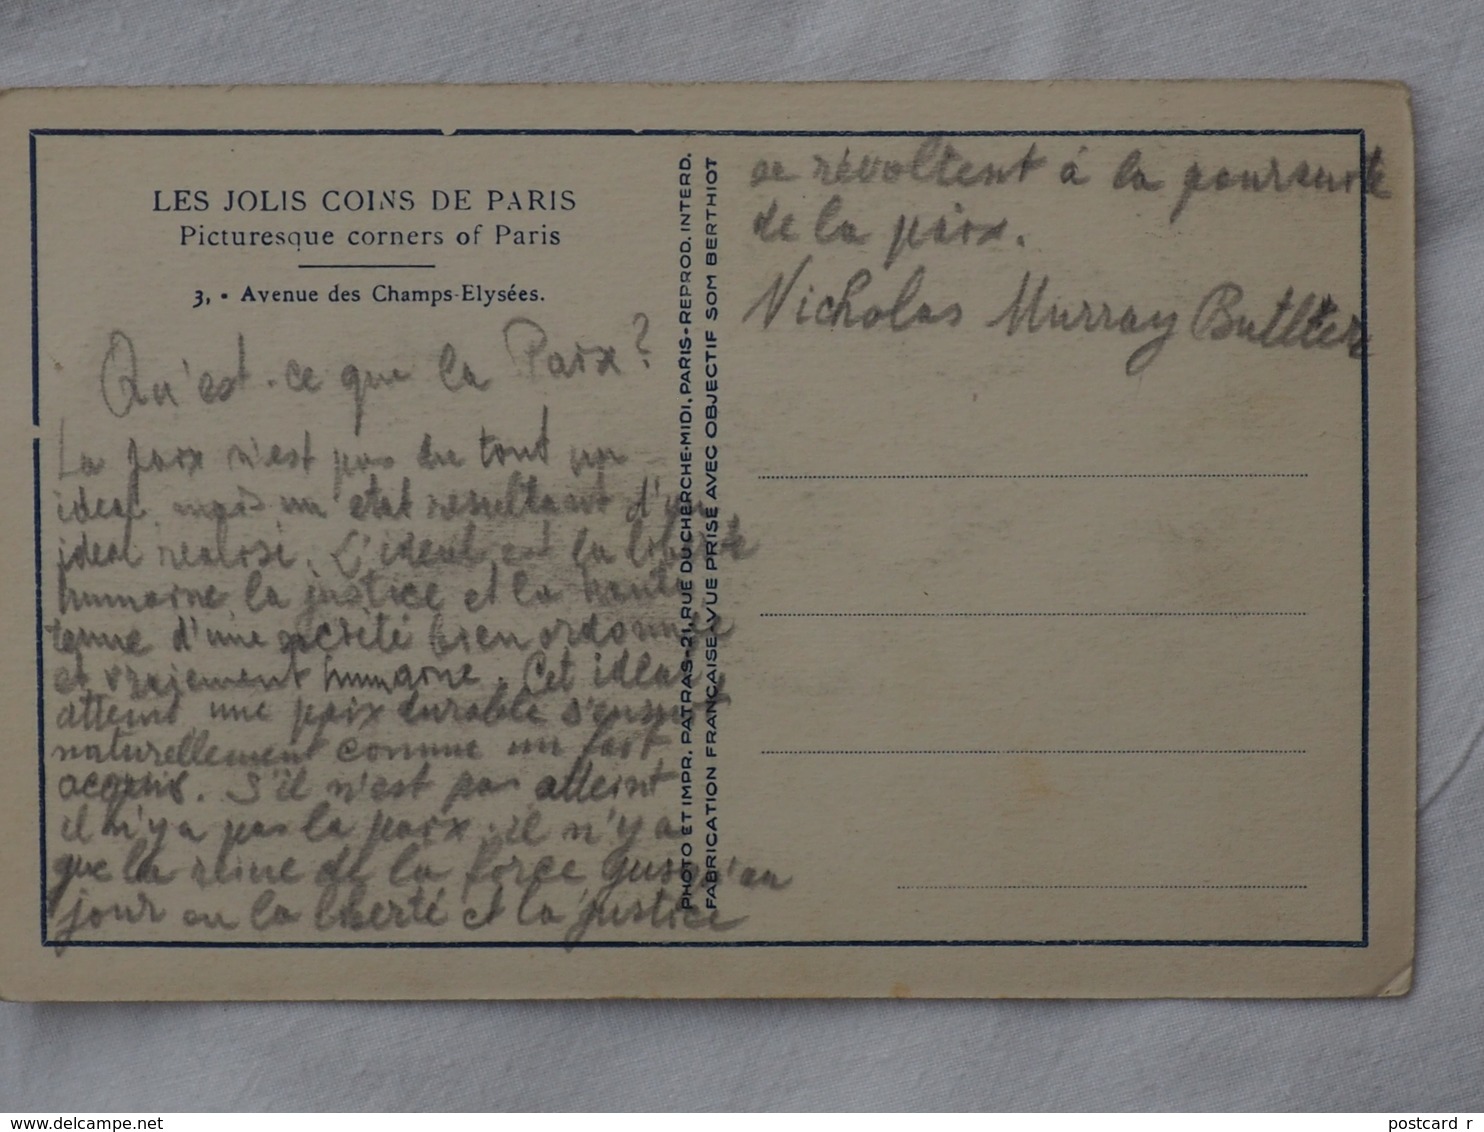 LES JOLIS COINS DE PARIS
Picturesque corners of Paris
3, - Avenue des Champs-Elysées.
Qu'est-ce que la Paix?
La paix n'est pas du tout un
ideal, mais un etat resultant d'un
ideal realisé. L'ideal est la liberté
humaine la justice et la haute
tenue d'une société bien ordonnée
et vraiement humaine. Cet ideal
atteint une paix durable s'ensuit
naturellement comme un fait
acquis. S'il n'est pas atteint
il n'y a pas la paix, il n'y a
que la reine de la force jusqu'au
jour ou la liberté et la justice
PHOTO ET IMPR. PATRAS-21, RUE DU CHERCHE-MIDI, PARIS-REPROD. INTERD.
FABRICATION FRANÇAISE-VUE PRISE AVEC OBJECTIF SOM BERTHIOT
se révoltent à la poursuite
de la paix.
Nicholas Murray Buttter
postcard_r
www.delcampe.net